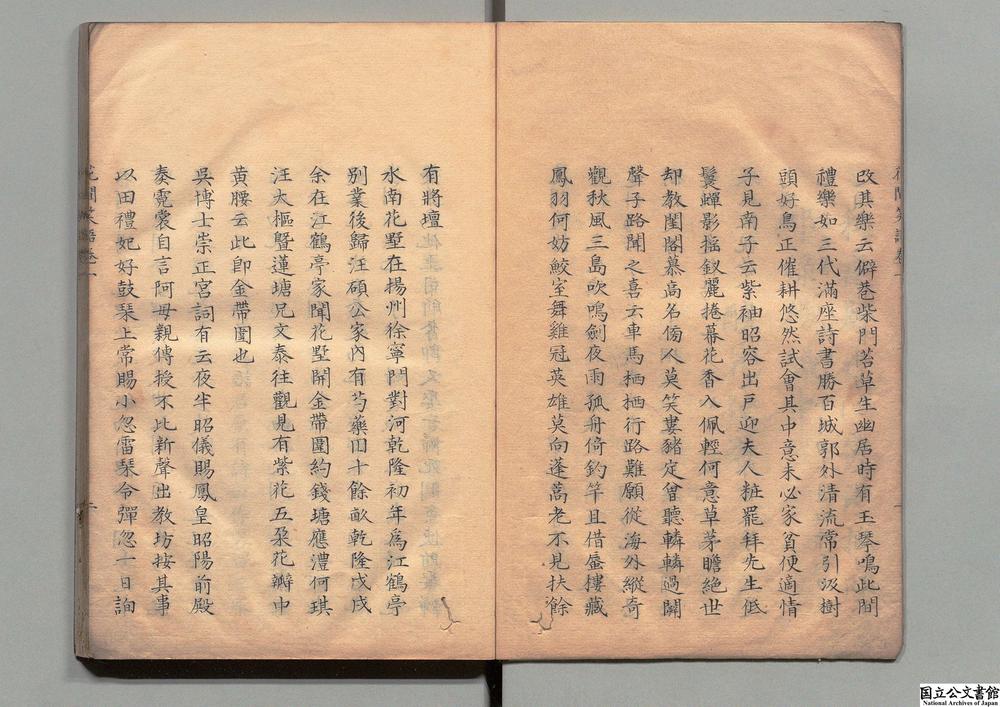 改其樂云僻巷柴門苔草生幽居時有玉琴鳴此間
禮樂如三代滿座詩書勝百城郭外清流常引汲樹
頭好鳥正催耕悠然試會其中意未必家貧便適情
子見南子云紫袖昭容出戶迎夫人粧罷拜先生低
鬟蟬影搖釵麗捲幕花香入佩輕何意草茅瞻絕世
却教閨閣慕高名傍人莫笑婁豬定曾聽轔轔過闕
聲子路聞之喜云車馬栖栖行路難願從海外縱奇
觀秋風三島吹鳴劍夜雨孤舟倚釣竿且借蜃樓藏
鳳羽何妨鮫室舞雞冠英雄莫向蓬蒿老不見扶餘
有將壇
水南花墅在揚州徐寧門對河乾隆初年為江鶴亭
別業後歸汪碩公家內有芍藥田十餘畝乾隆戊戌
余在江鶴亭家聞花墅開金帶圍約錢塘應澧何琪
汪大樞暨蓮塘兄文泰往觀見有紫花五朶花瓣中
黃腰云此卽金帶圍也
吳博士崇正宮詞有云夜半昭儀賜鳳皇昭陽前殿
奏霓裳自言阿母親傳授不比新聲出教坊按其事
以田禮妃好鼓琴上常賜小忽雷琴令彈忽一日詢
花間笑語卷一
一
国立公文書館
National Archives of Japan